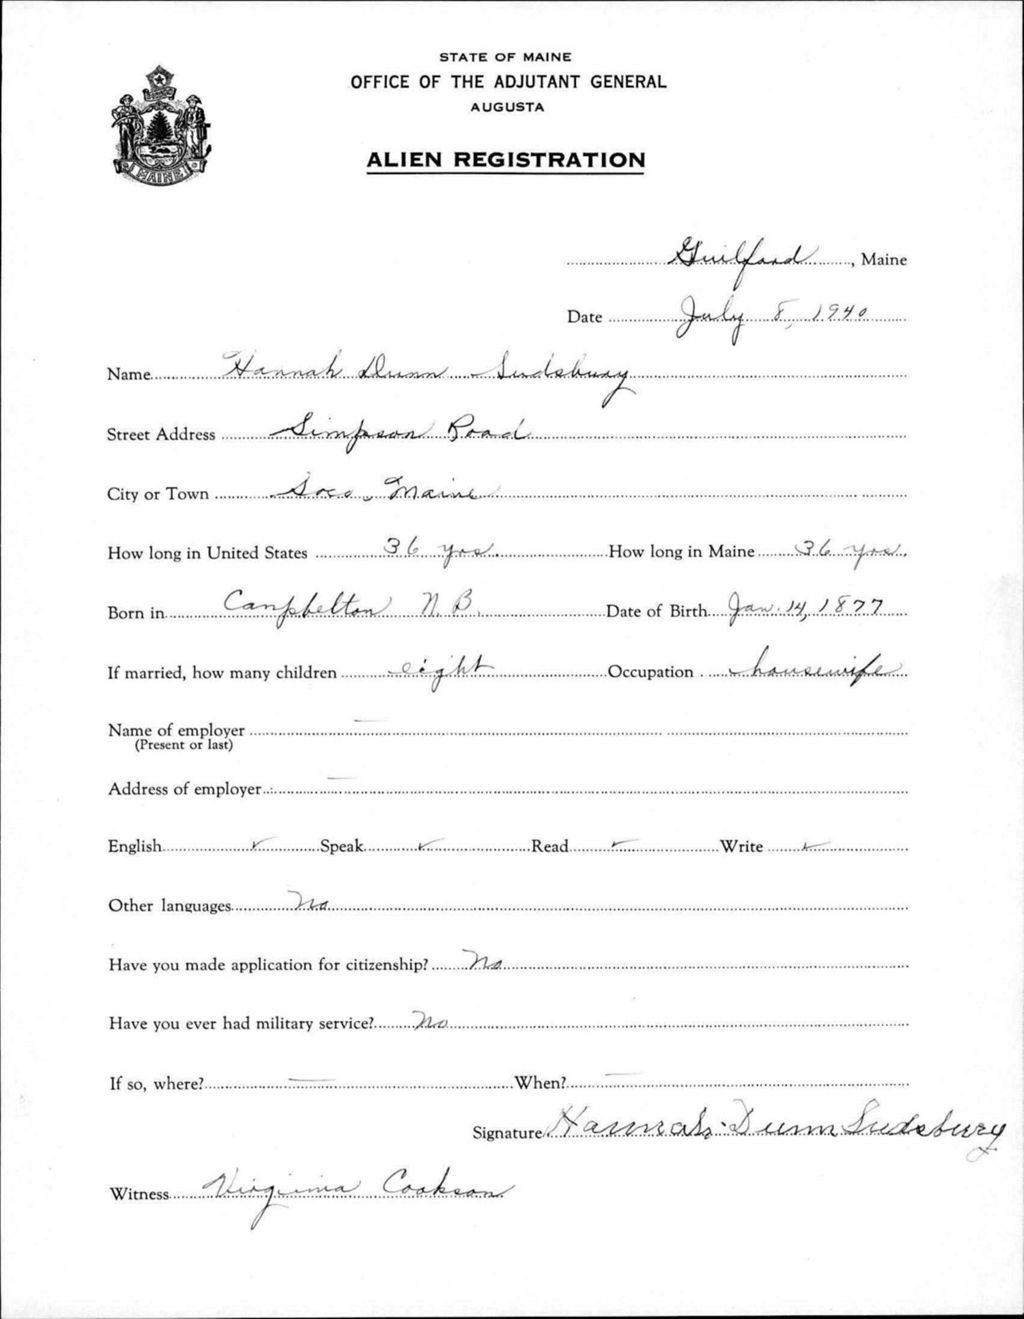 STATE OF MAINE
OFFICE OF THE ADJUTANT GENERAL
AUGUSTA
ALIEN REGISTRATION
MAINE
Guilford, Maine
Date July 8, 1940
Name Hannah Dunn Sudsbury
Street Address Simpson Road
City or Town Soco, Maine
How long in United States 36 yrs. How long in Maine 36 yrs.
Born in Campbelton N.B. Date of Birth Jan. 14, 1877
If married, how many children eight Occupation housewife
Name of employer —
(Present or last)
Address of employer —
English ✓ Speak ✓ Read ✓ Write ✓
Other languages No
Have you made application for citizenship? No
Have you ever had military service? No
If so, where? — When? —
Signature Hannah Dunn Sudsbury
Witness Virginia Cookson